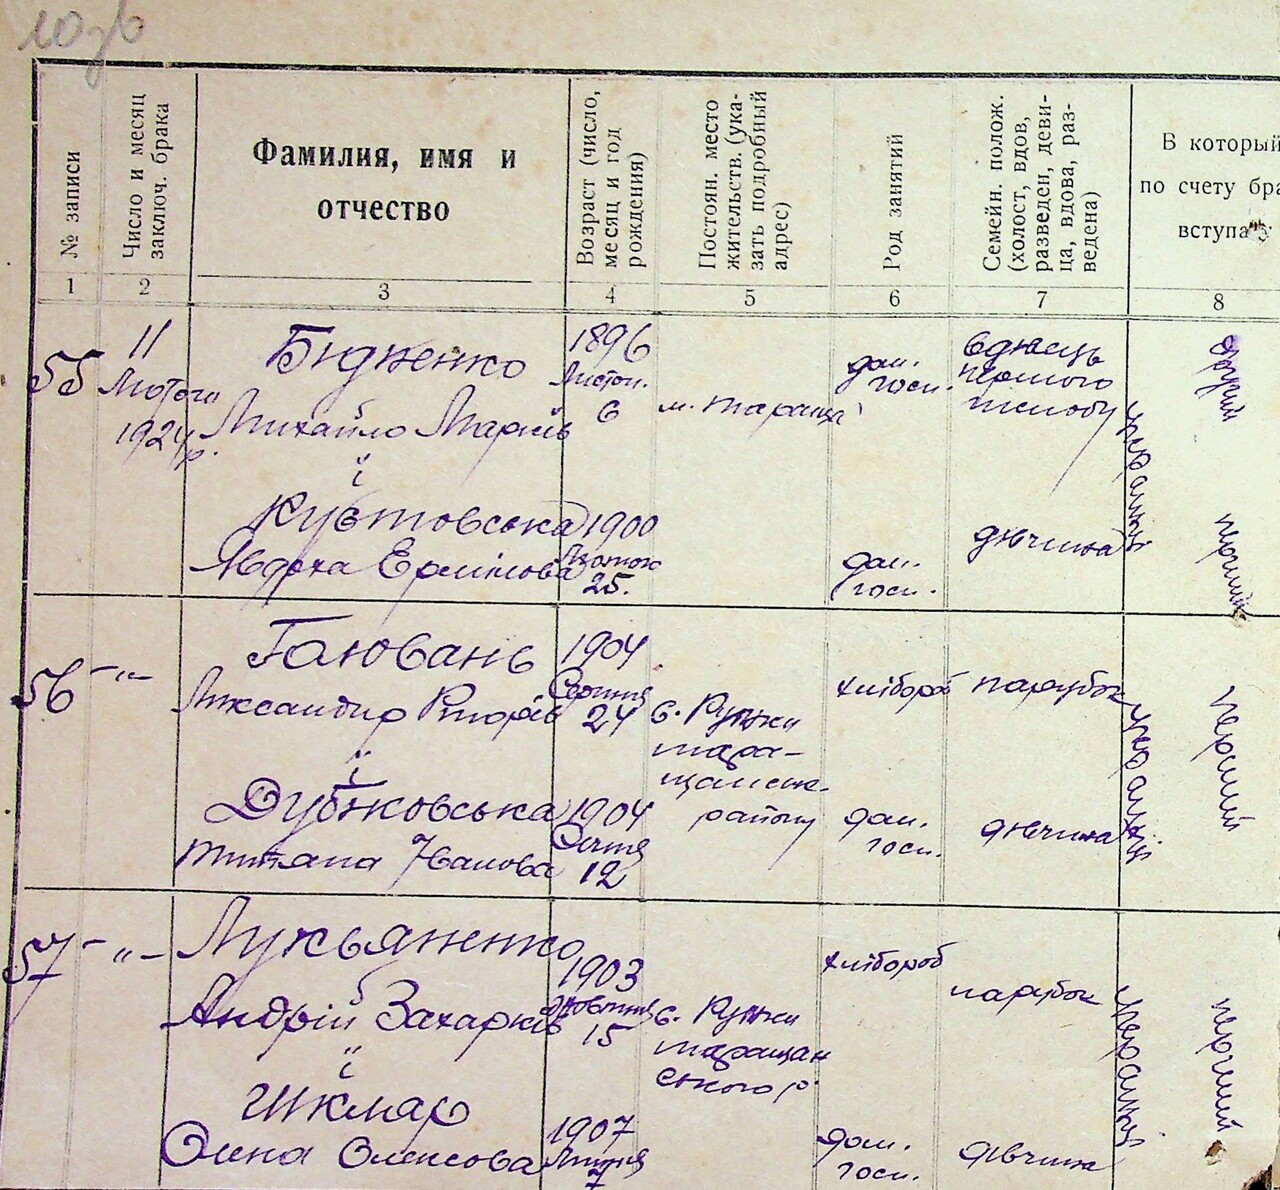 № записи
Число и месяц
заключ. брака
Фамилия, имя и
отчество
Возраст (число,
месяц и год
рождения)
Постоян. место
жительств. (ука-
зать подробный
адрес)
Род занятий
Семейн. полож.
(холост, вдов,
разведен, деви-
ца, вдова, раз-
ведена)
В который
по счету бра
вступа
1
2
3
4
5
6
7
8
55
11
Лютого
1924 р.
Михайло Марків
і
Явдоха
1896
Листоп.
6
1900
Лютого
25.
м. Тараща
дом.
госп.
дом.
госп.
першого
шлюбу
дівчина
українці
другий
перший
56 – " –
Гаювань
Григорів
і
Дубковська
Титяна Іванова
1904
Серпня
24
1904
Січня
12
с. Лужки
тара-
щанськ.
району
хлібороб
дом.
госп.
парубок
дівчина
українці
перший
57 – " –
Лукьяненко
Андрій Захарків
і
Шкляр
Олена Олексова
1903
Жовтня
15
1907
Липня
7
с. Лужки
таращан
ського р.
хлібороб
дом.
госп.
парубок
дівчина
українці
перший